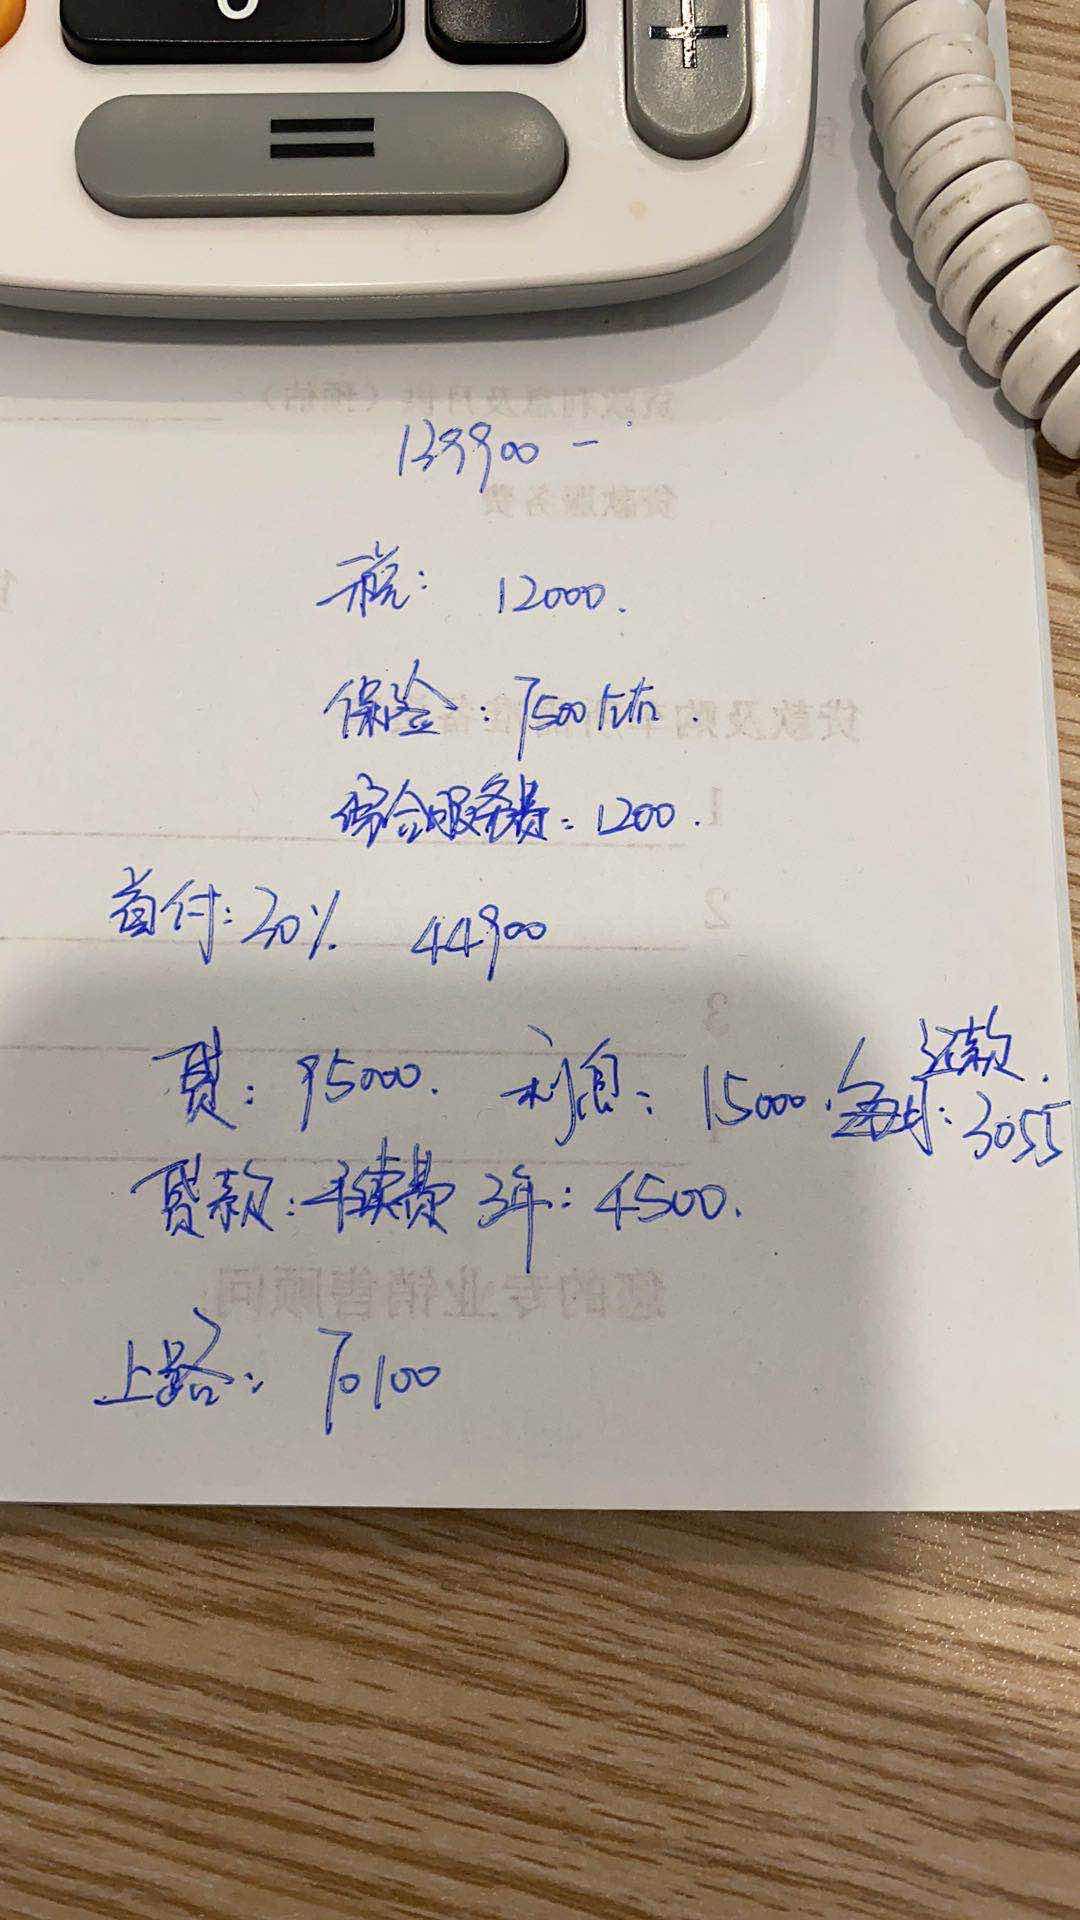 139900 -
税: 12000.
保险: 7500左右.
综合服务费: 1200.
首付: 30% 44900
贷: 95000. 利息: 15000. 还款.
每月: 3055
贷款: 手续费 3年: 4500.
上路: 70100
贷款利息及月供（预估）
贷款服务费
贷款及购车
1
2
3
您的专业销售顾问